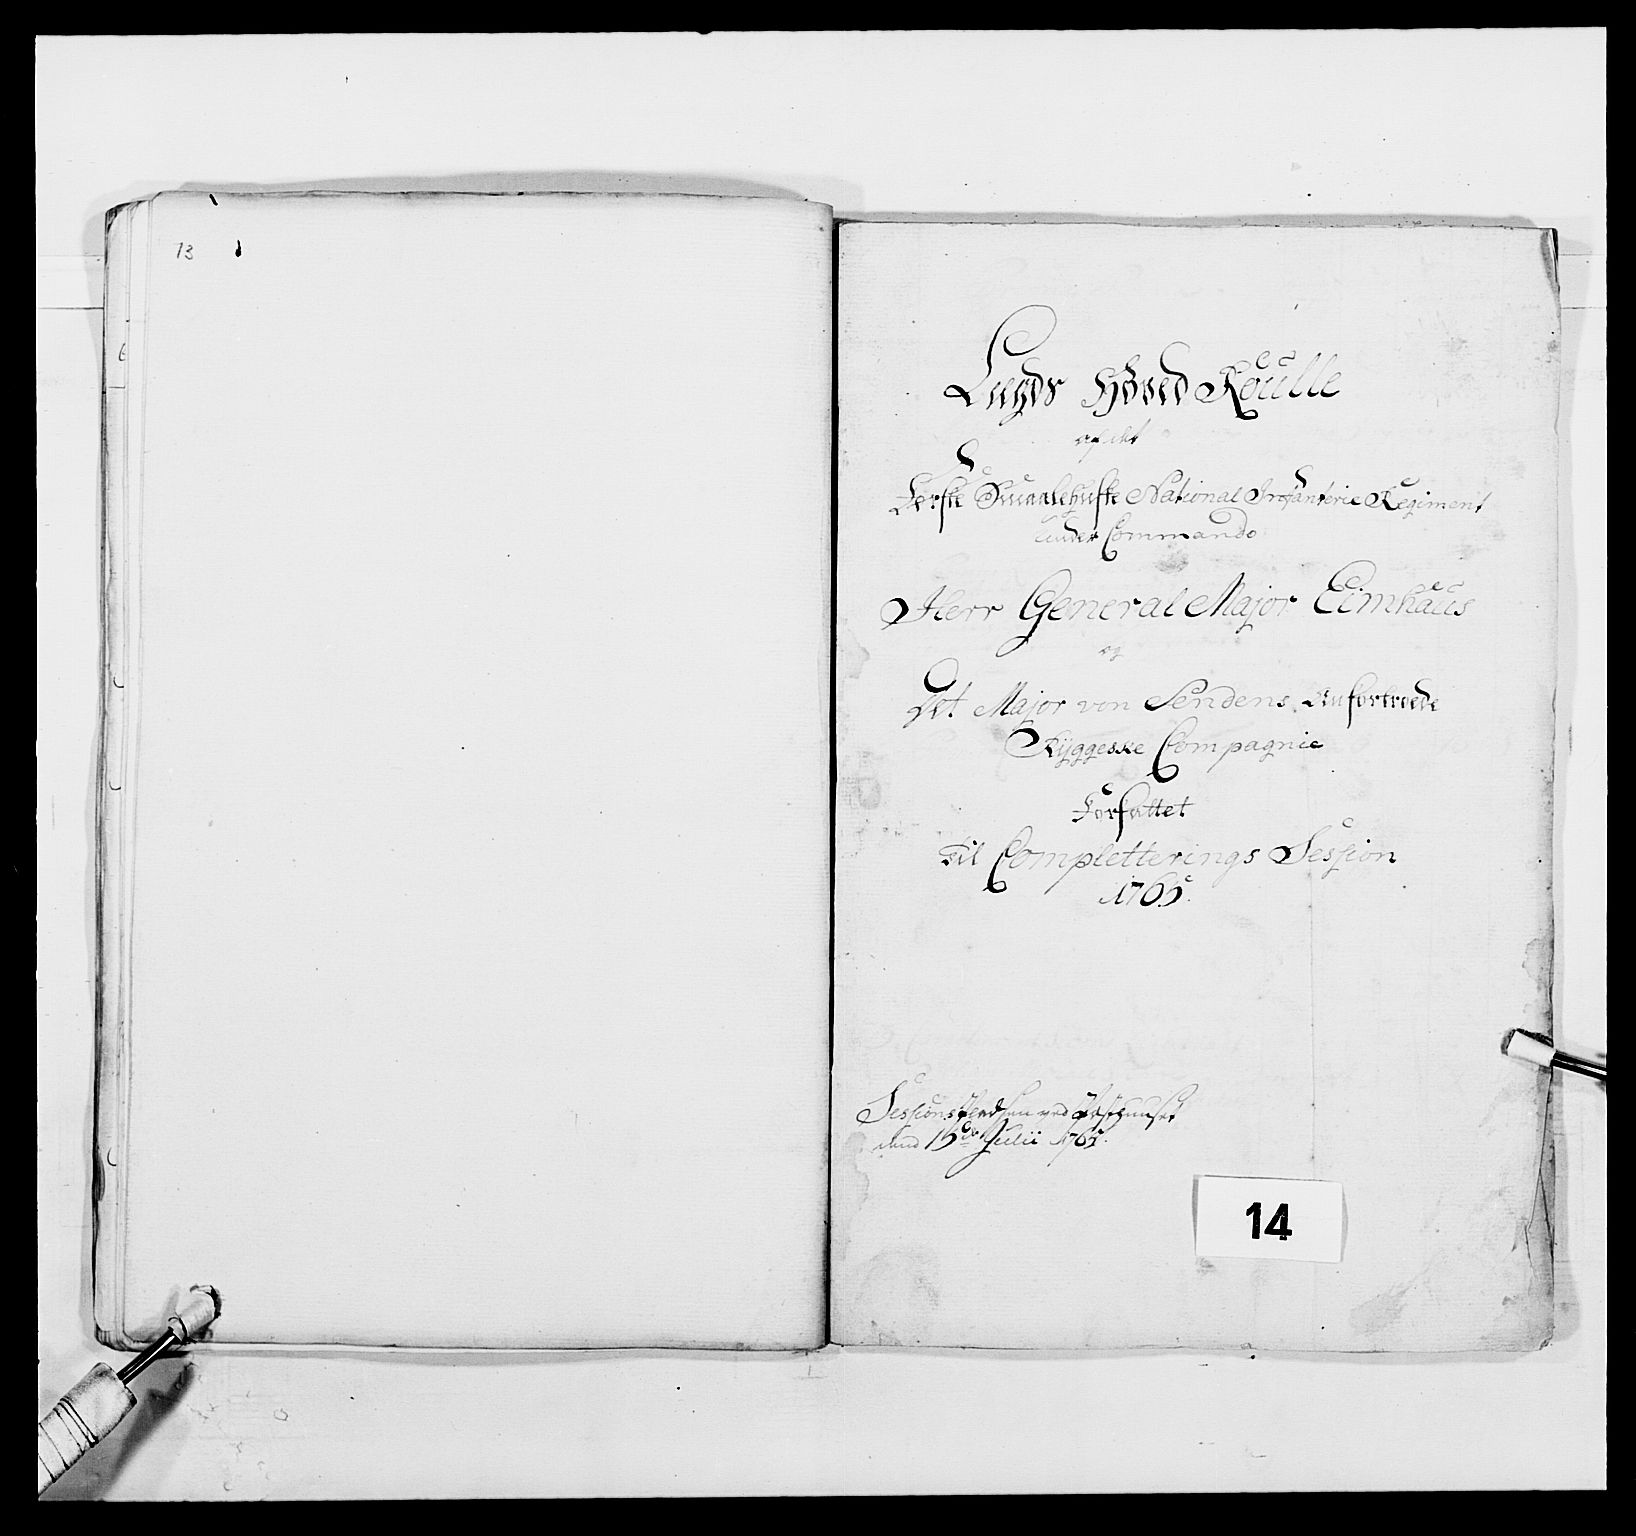 13
Lægds Hoved Roulle
af det
Første Smaalehnske National Infanterie Regiment
under Commando
Herr General Major Eimhaus
og
Det Major von Sendens Anfortroede
Ryggeske Compagnie
Forfattet
til Completterings Session
1765.
Sessions ved
dend 15de Julii 1765.
14